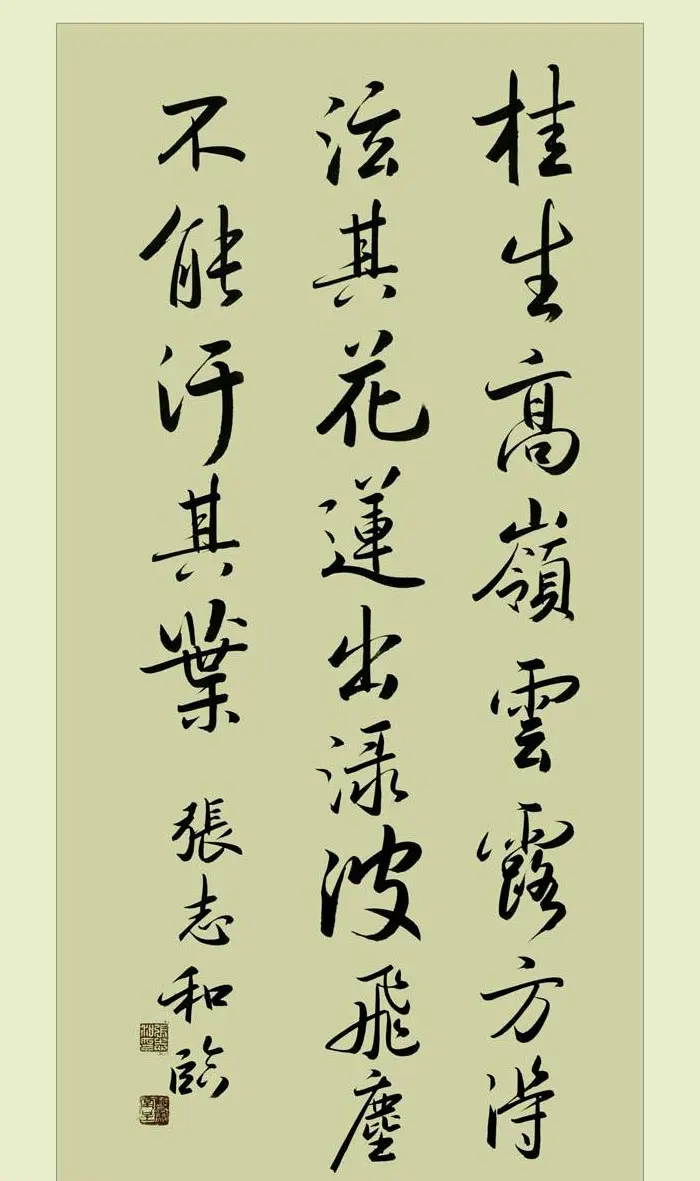 桂生高嶺雲露方得
泫其花蓮出渌波飛塵
不能汙其葉 張志和臨